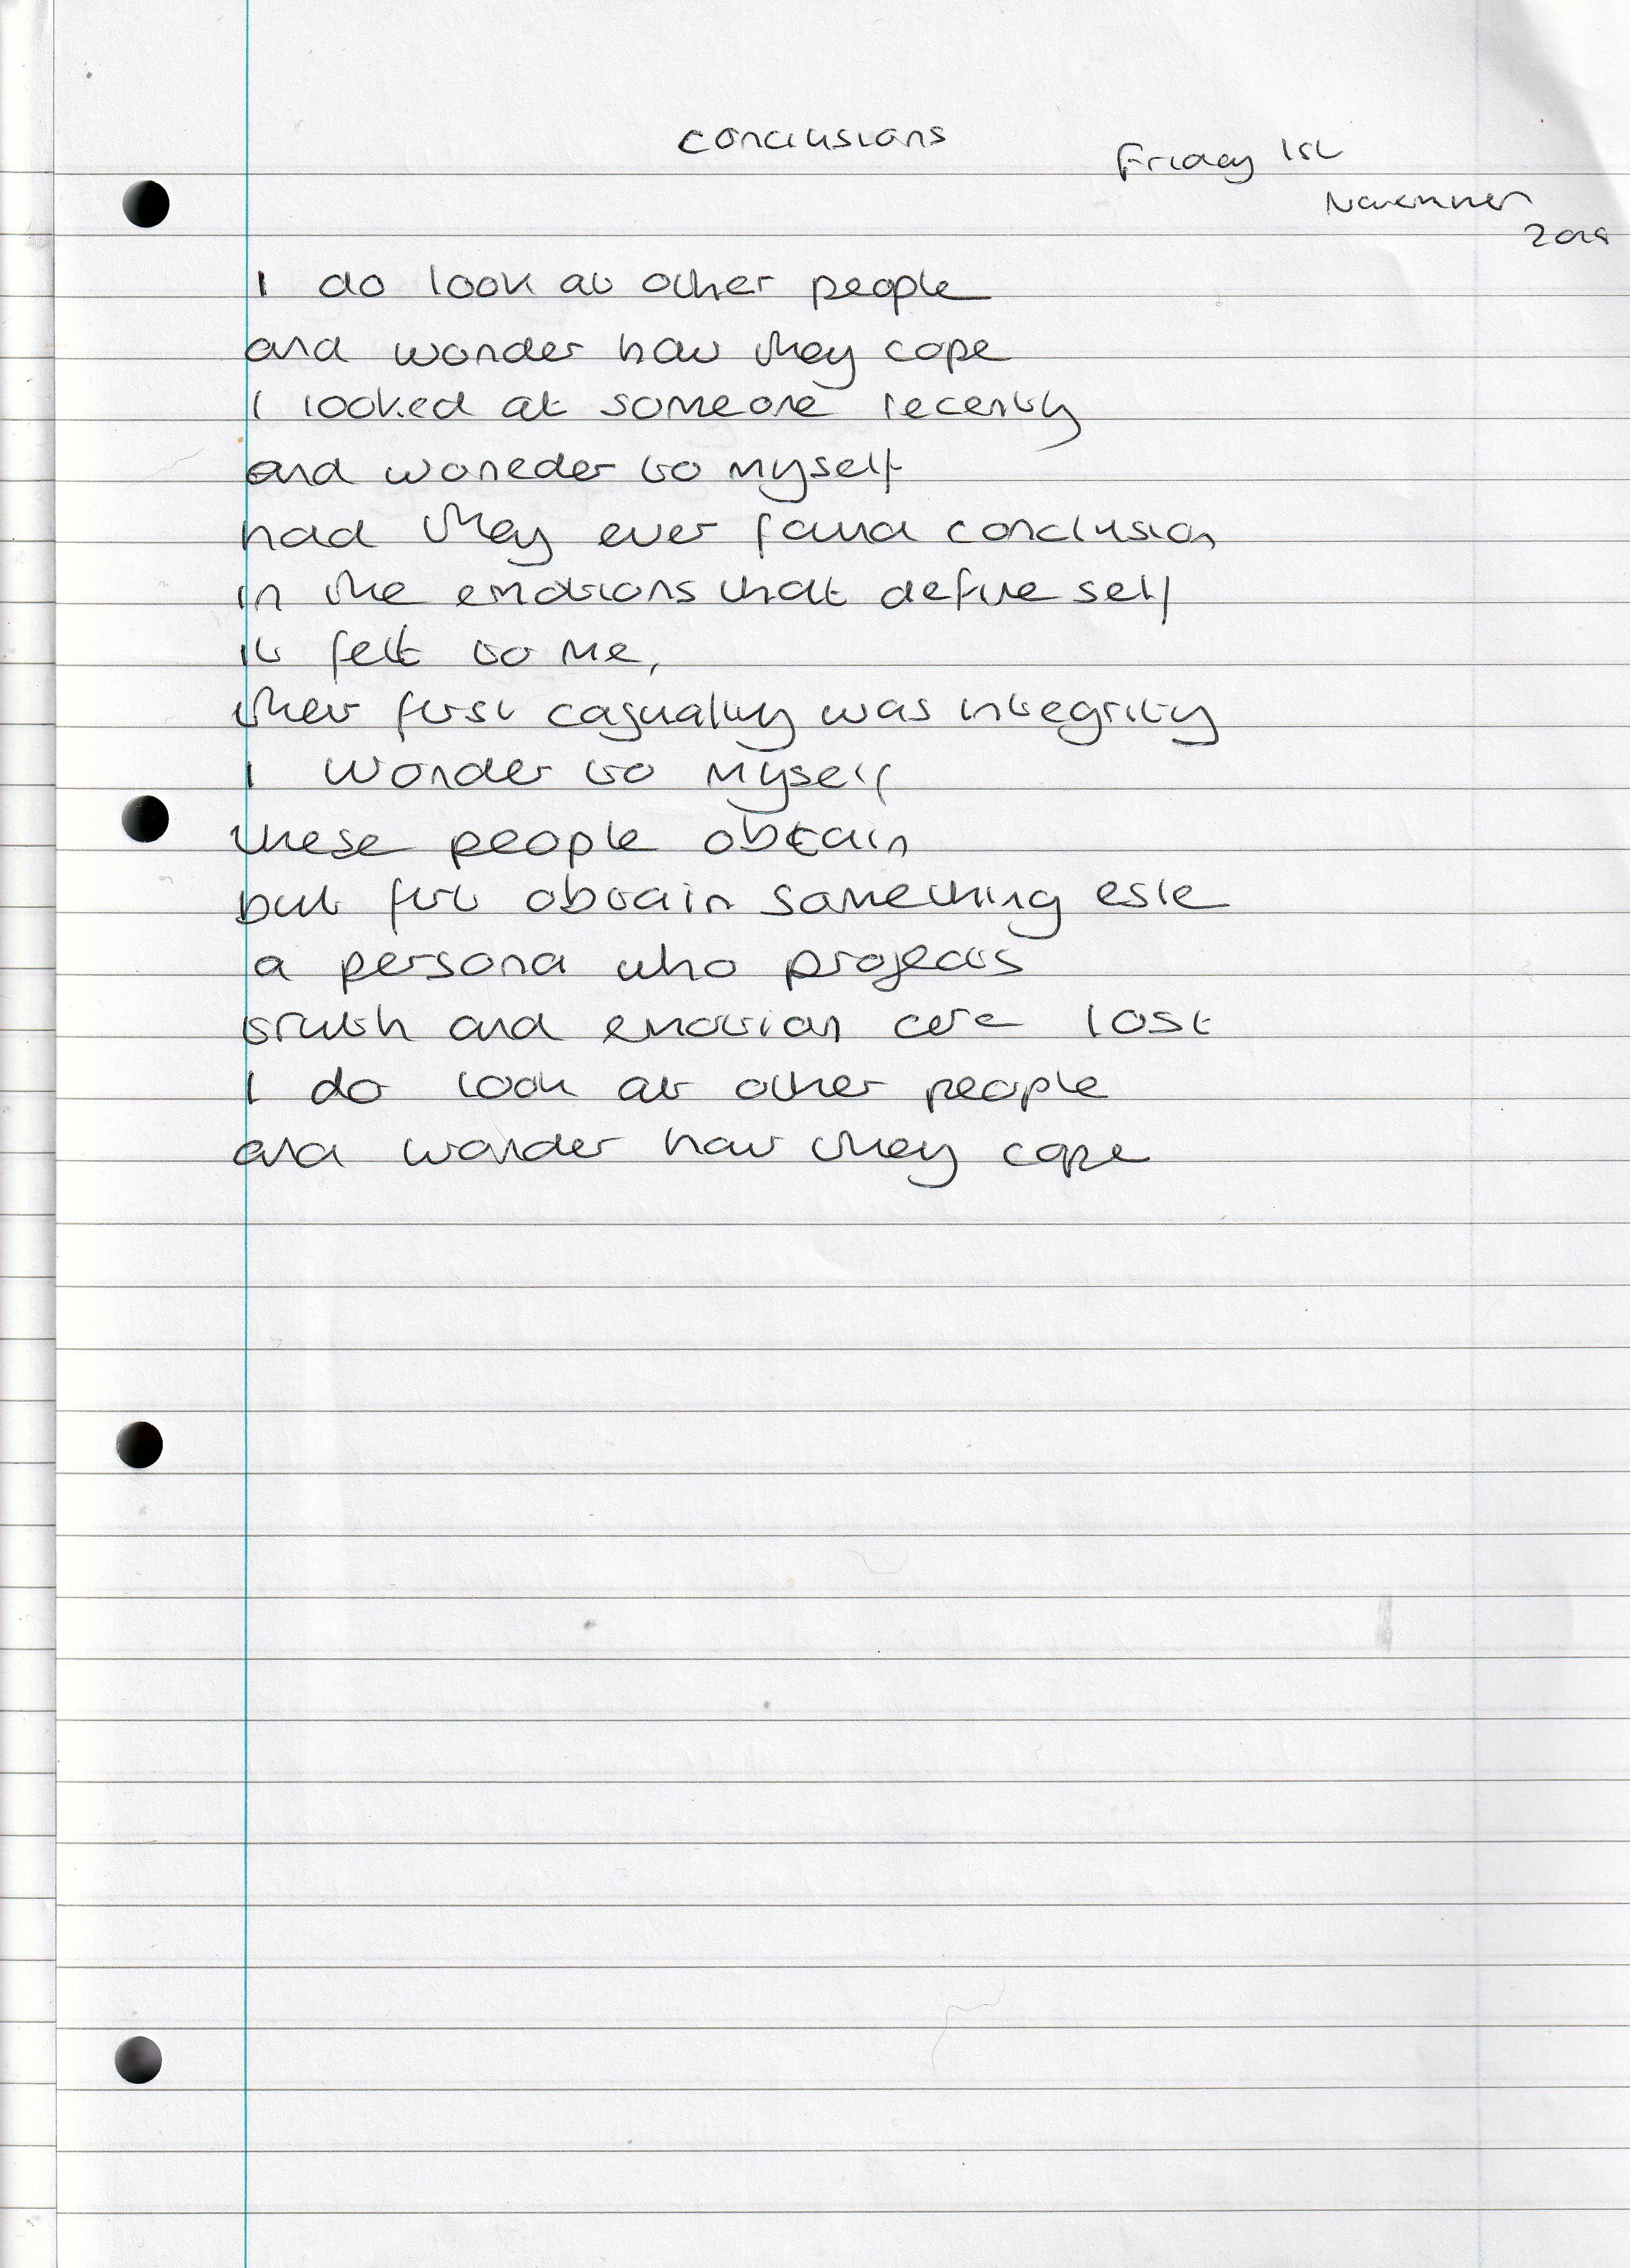 conclusions
Friday 1st
November
2019
I do look at other people
and wonder how they cope
I looked at someone recently
and woneder to myself
had they ever found conclusion
in the emotions that define self
it felt to me,
their first casualty was integrity
I wonder to myself
these people obtain
but for obtain something esle
a persona who projects
truth and emotion are lost
I do look at other people
and wonder how they cope